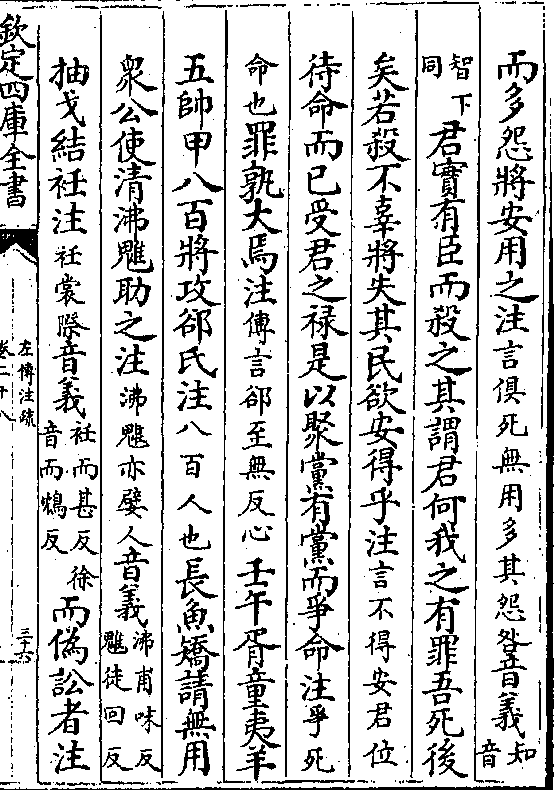 而多怨將安用之注言俱死無用多其怨咎音義知音
智下同君實有臣而殺之其謂君何我之有罪吾死後
矣若殺不辜將失其民欲安得乎注言不得安君位
待命而已受君之祿是以聚黨有黨而爭命注爭死
命也罪孰大焉注傳言郤至無反心壬午胥童夷羊
五帥甲八百將攻郤氏注八百人也長魚矯請無用
衆公使清沸魋助之注沸魋亦嬖人音義沸甫味反魋徒回反
抽戈結衽注衽裳際音義衽而甚反徐音而鴆反而偽訟者注
欽定四庫全書
左傳注疏
卷二十八
三十六